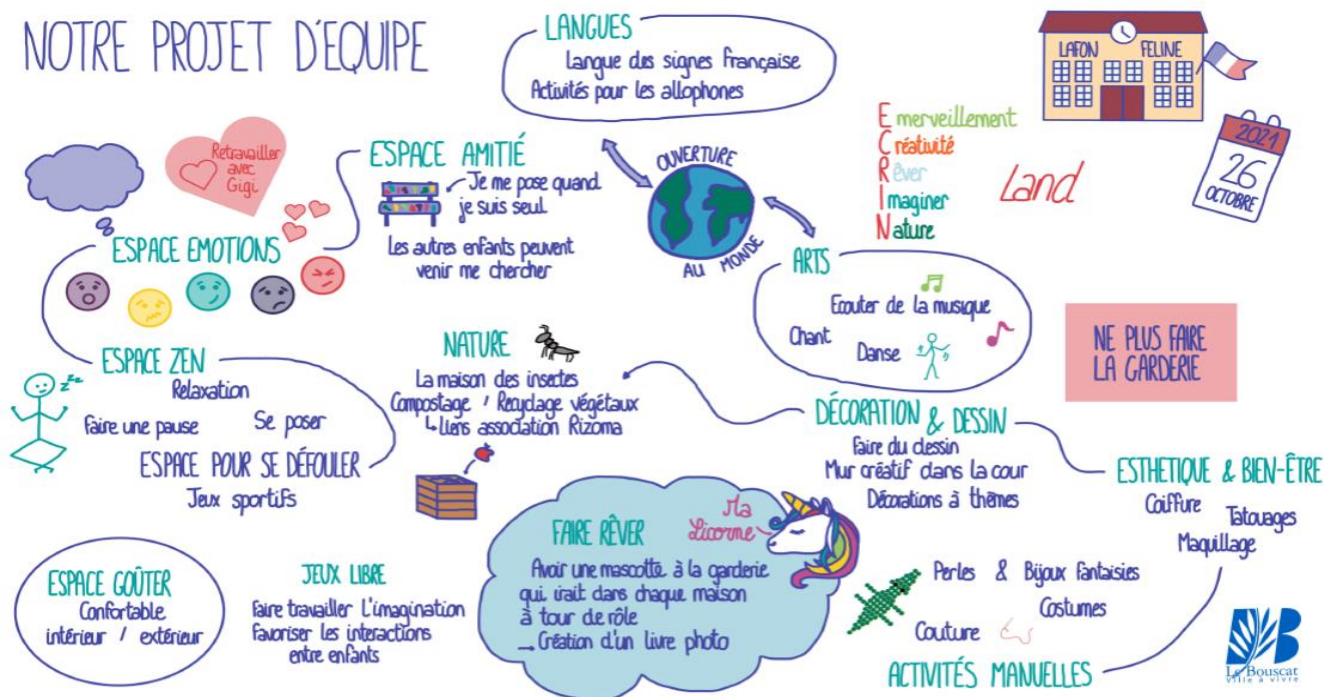 NOTRE PROJET D'EQUIPE
LANGUES
Langue des signes française
Activités pour les allophones
LAFON FELINE
2021
26
OCTOBRE
Emerveillement
Créativité
Rêver
Imaginer
Nature
Land
OUVERTURE
AU MONDE
Retravailler
avec
Gigi
ESPACE AMITIÉ
Je me pose quand
je suis seul
Les autres enfants peuvent
venir me chercher
ESPACE EMOTIONS
ARTS
Ecouter de la musique
Chant
Danse
NE PLUS FAIRE
LA GARDERIE
ESPACE ZEN
Relaxation
Faire une pause
Se poser
ESPACE POUR SE DÉFOULER
Jeux sportifs
NATURE
La maison des insectes
Compostage / Recyclage végétaux
↳ Liens association Rizoma
DÉCORATION & DESSIN
Faire du dessin
Mur créatif dans la cour
Décorations à thèmes
ESTHETIQUE & BIEN-ÊTRE
Coiffure
Tatouages
Maquillage
ESPACE GOÛTER
Confortable
intérieur / extérieur
JEUX LIBRE
Faire travailler l'imagination
Favoriser les interactions
entre enfants
FAIRE RÊVER
Ma
Licorne
Avoir une mascotte à la garderie
qui irait dans chaque maison
à tour de rôle
→ Création d'un livre photo
Perles & Bijoux fantaisies
Costumes
Couture
ACTIVITÉS MANUELLES
Le Bouscat
Ville à vivre